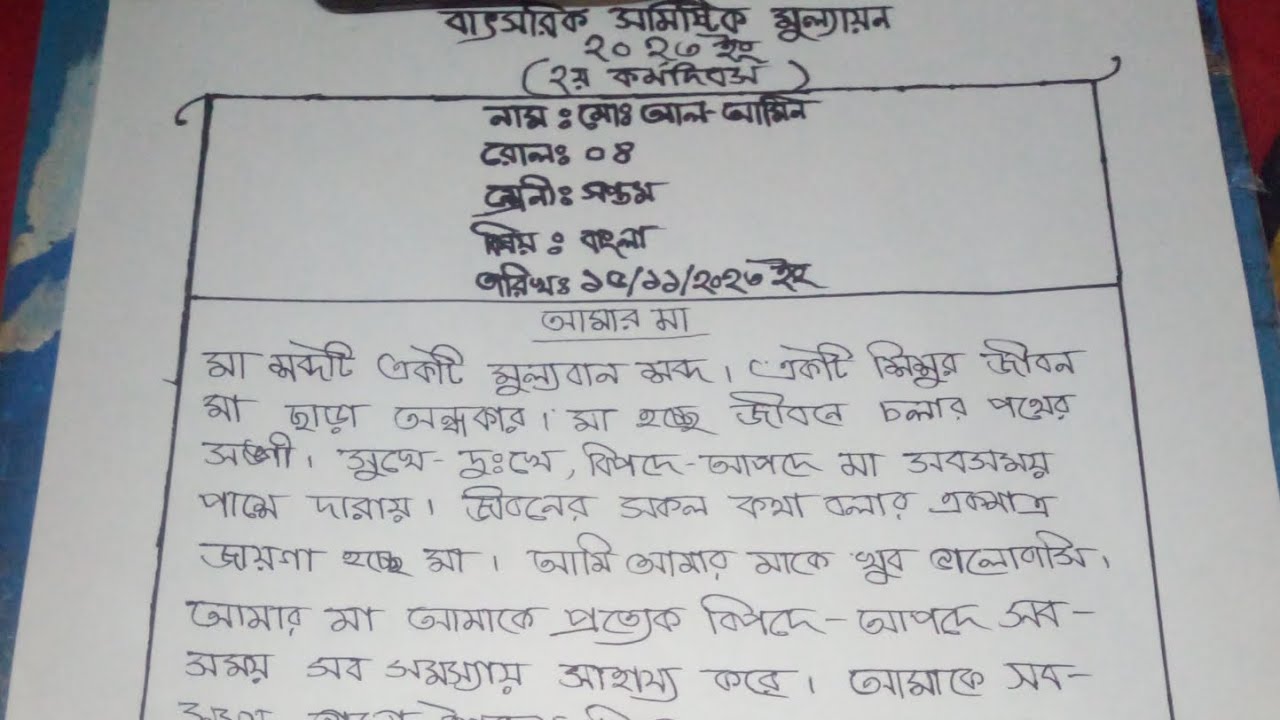 বাৎসরিক সামষ্টিক মূল্যায়ন
২০২৩ ইং
(২য় কর্মদিবস)
নাম : মোঃ আল-আমিন
রোলঃ ০৪
শ্রেনীঃ সপ্তম
বিষয় : বাংলা
তারিখঃ ১৫/১১/২০২৩ ইং
আমার মা
মা শব্দটি একটি মুল্যবান শব্দ। একটি শিশুর জীবন
মা ছাড়া অন্ধকার। মা হচ্ছে জীবনে চলার পথের
সঙ্গী। সুখে-দুঃখে, বিপদে-আপদে মা সবসময়
পাশে দারায়। জীবনের সকল কথা বলার একমাত্র
জায়গা হচ্ছে মা। আমি আমার মাকে খুব ভালোবাসি।
আমার মা আমাকে প্রত্যেক বিপদে-আপদে সব-
সময় সব সমস্যায় সাহায্য করে। আমাকে সব-